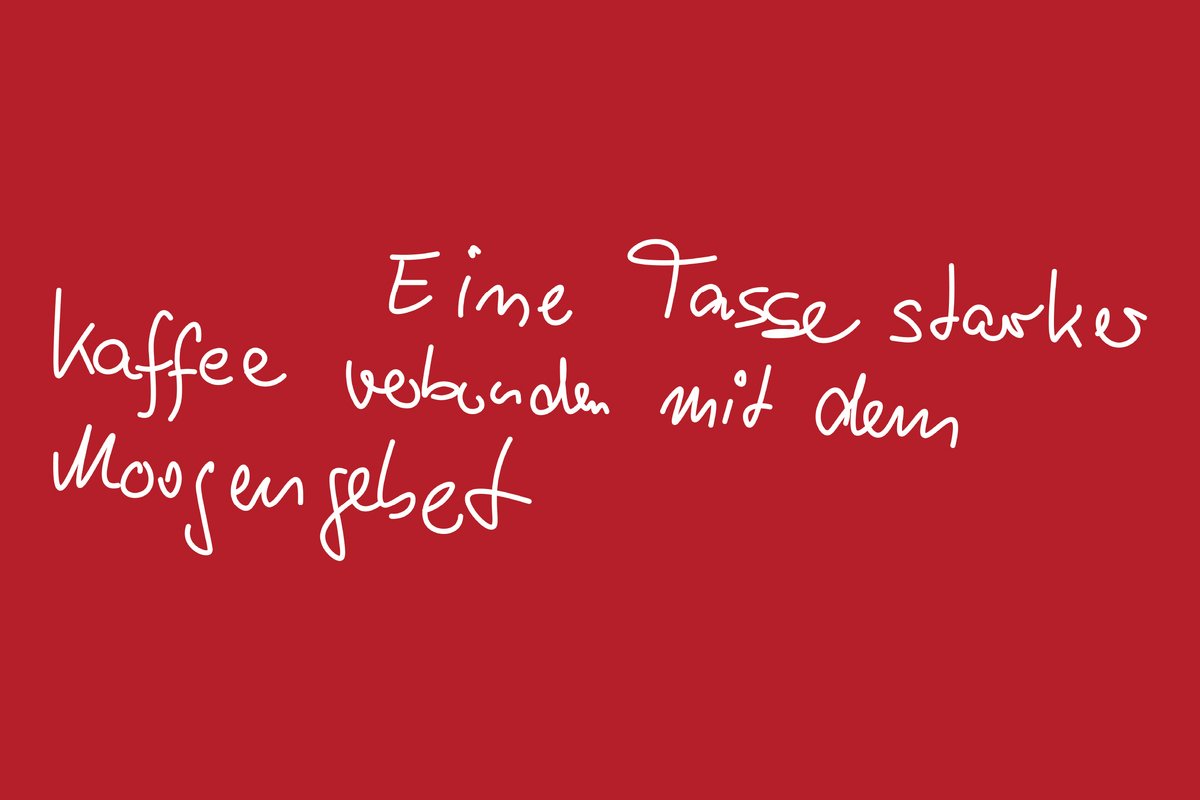 Eine Tasse starker
Kaffee verbunden mit dem
Morgengebet